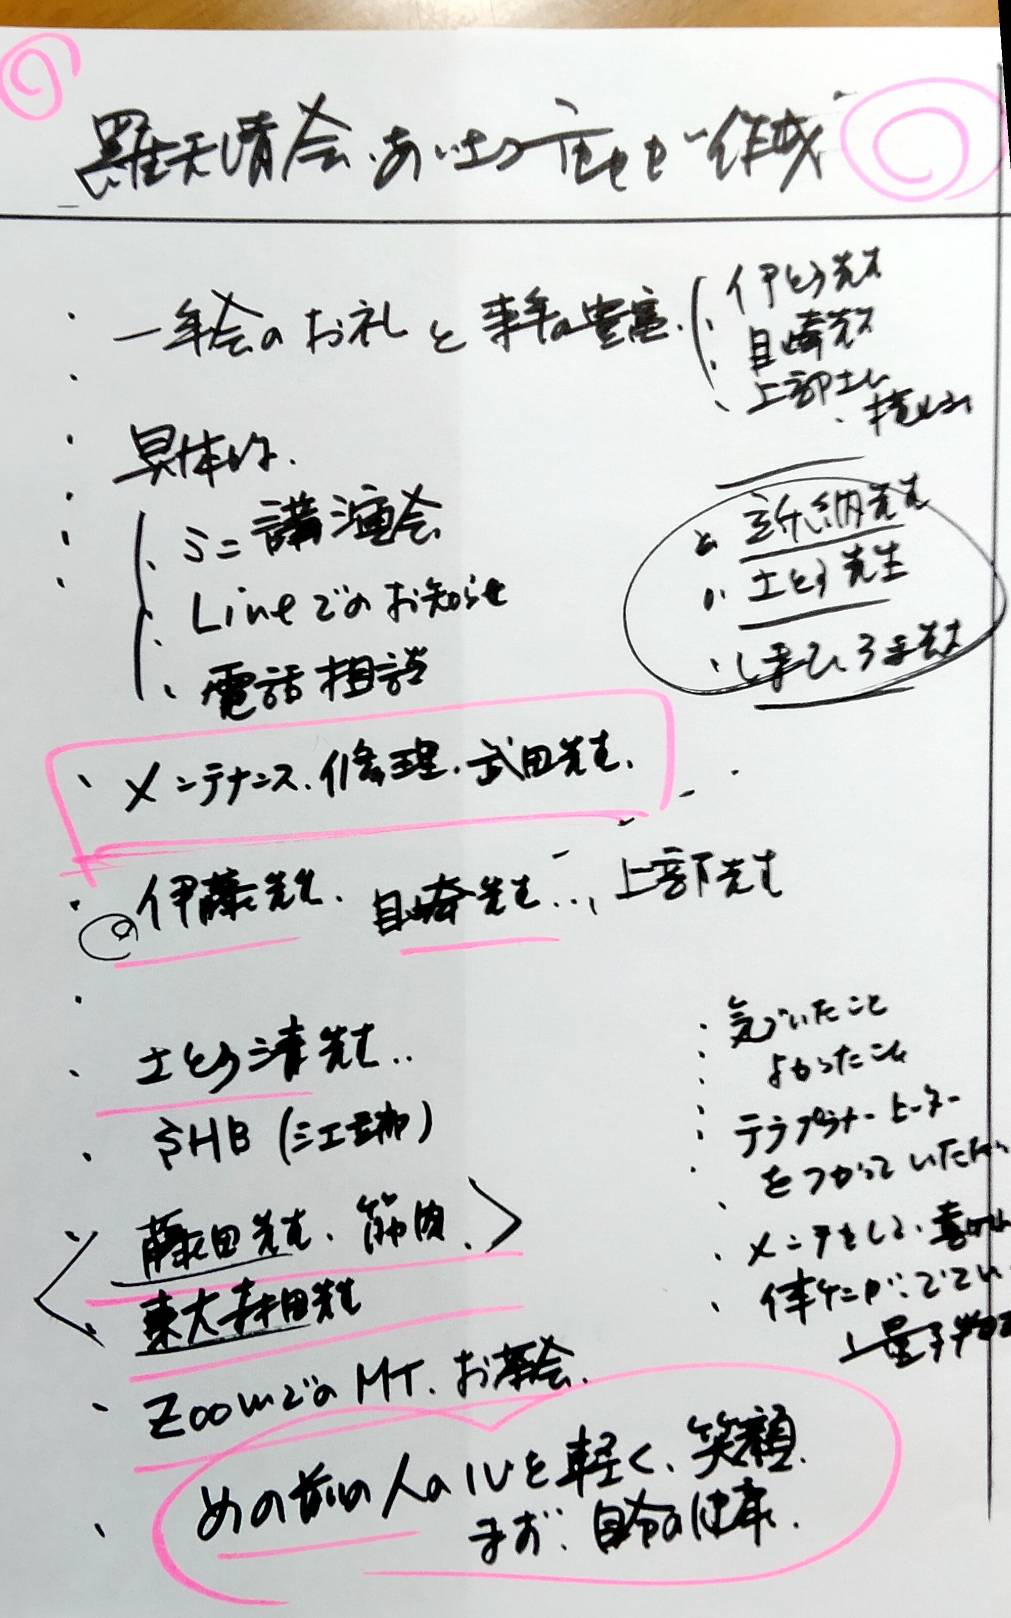 羅天清会、あいさつ
作成
一年会のお礼と来年の豊富、
伊とう先生
目崎先生
上部
具体的、
ミニ講演会
Lineでのお知らせ
電話相談
新納先生
さとう先生
先生
メンテナンス、修理、武田先生、
伊藤先生、目崎先生…、上部先生
さとう清先生…
SHB(三工
藤田先生、筋肉、
東大 村田先生
ZoomでのMT、お茶会、
めの前の人の心を軽く、笑顔、
まず、自分の健康、
気づいたこと
よかったこと
テラプラナーヒーター
をつかって いただ
メンテをして、喜
体ケンが、でてい
量子